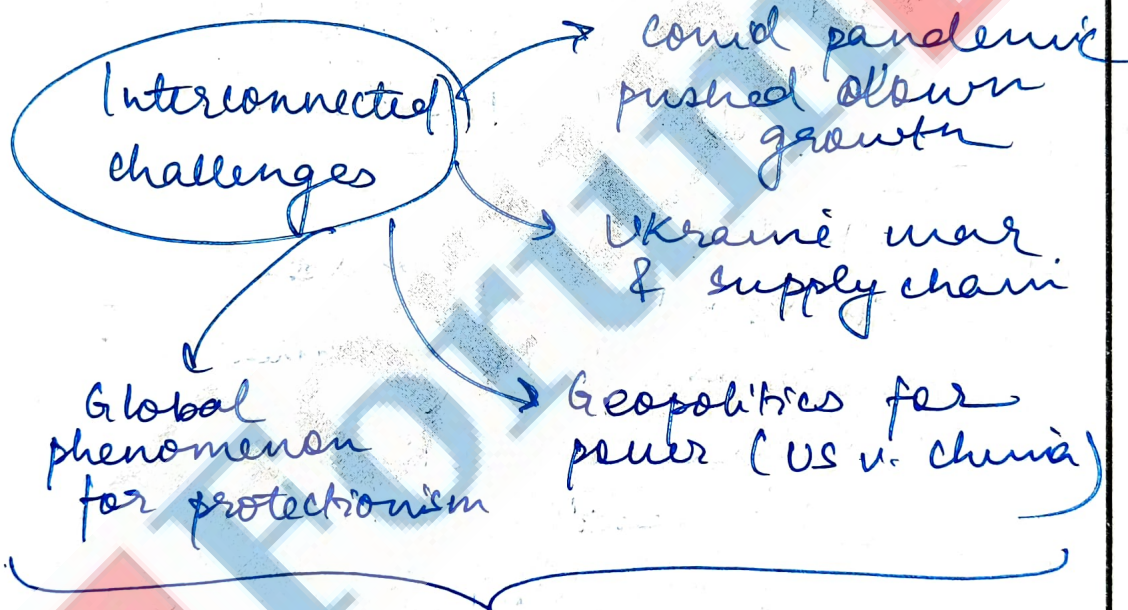 Interconnected
challenges
Covid pandemic
pushed down
growth
Ukraine war
& supply chain
Geopolitics for
power (US v. China)
Global
phenomenon
for protectionism
Forum